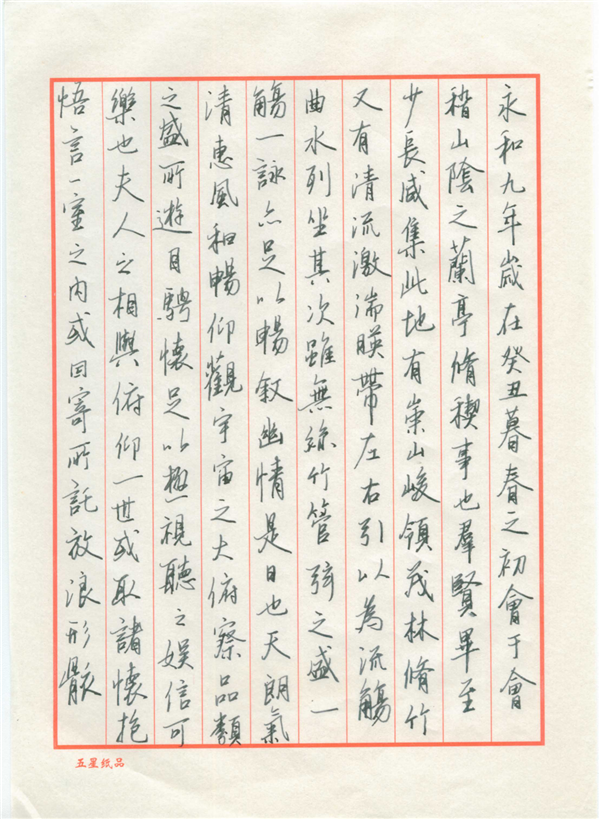 永和九年歲在癸丑暮春之初會于會
稽山陰之蘭亭脩稧事也羣賢畢至
少長咸集此地有崇山峻領茂林脩竹
又有清流激湍暎帶左右引以為流觴
曲水列坐其次雖無絲竹管弦之盛一
觴一詠亦足以暢叙幽情是日也天朗氣
清惠風和暢仰觀宇宙之大俯察品類
之盛所遊目騁懷足以極視聽之娛信可
樂也夫人之相與俯仰一世或取諸懷抱
悟言一室之内或因寄所託放浪形骸
五星纸品